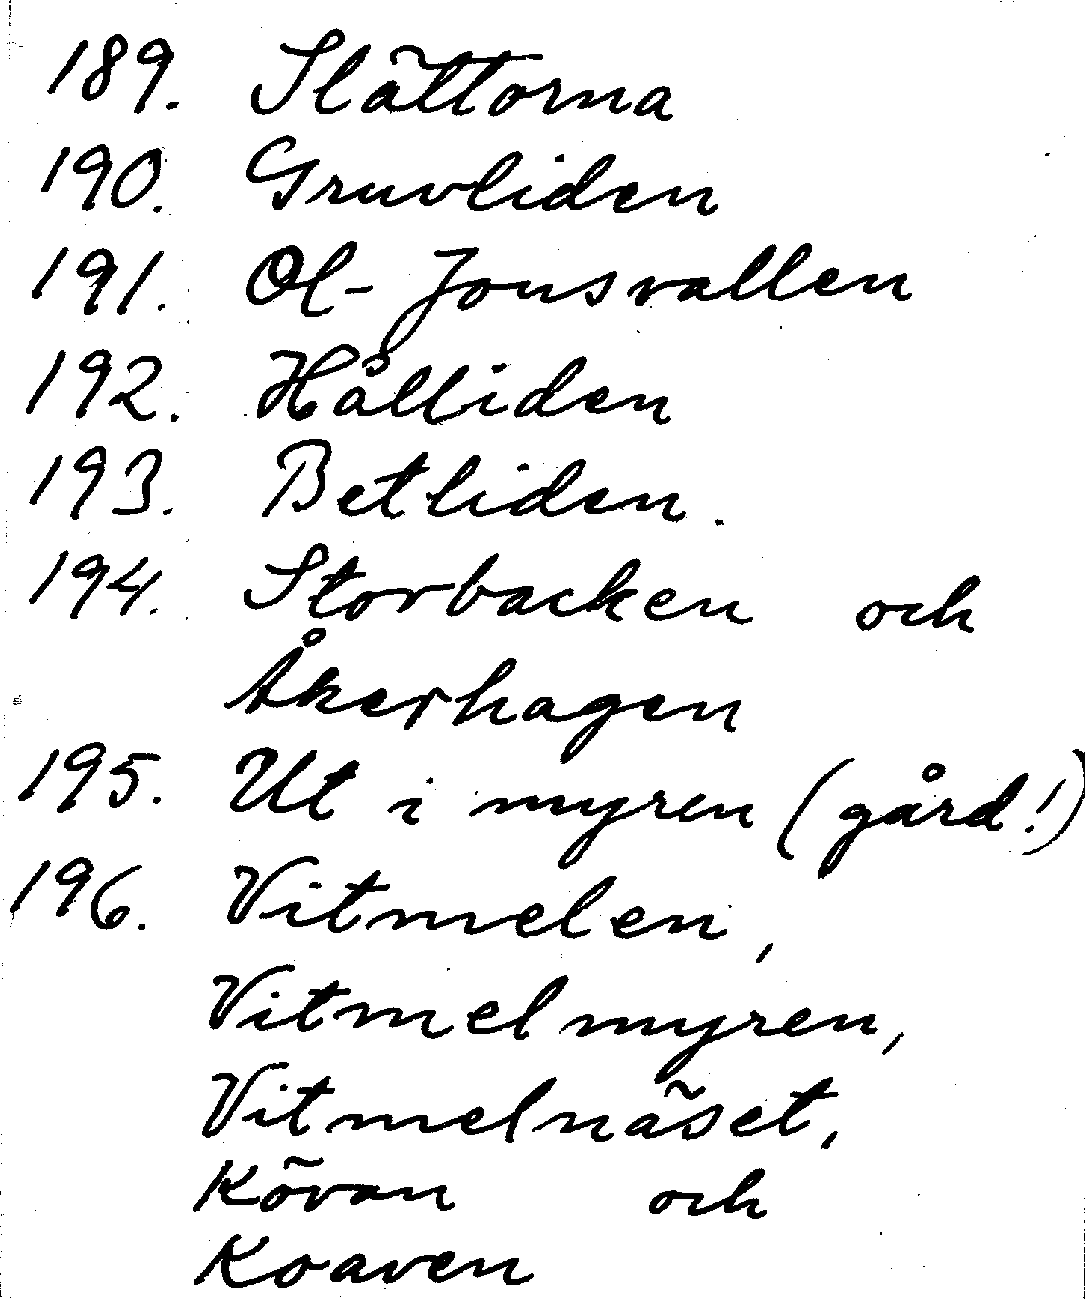 189. Slättorna
190. Gruvliden
191. Ol-Jonsvallen
192. Hålliden
193. Betliden.
194. Storbacken och
Åkerhagen
195. Ut i myren (gård!)
196. Vitmelen,
Vitmelmyren,
Vitmelnäset,
Kövan och
Koaven